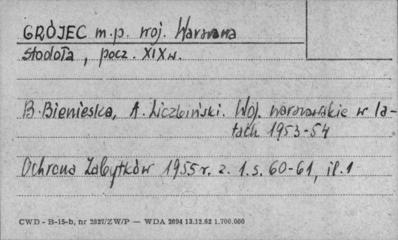 GRÓJEC m.p. woj. Warszawa
stodoła, pocz. XIX w.
B. Bienieska, A. Liczbiński. Woj. warszawskie w la-
tach 1953-54
Ochrona Zabytków 1955 r. z. 1. s. 60-61, il. 1
CWD - B-15-b, nr 2827/ZW/P — WDA 2694 13.12.62 1.700.000